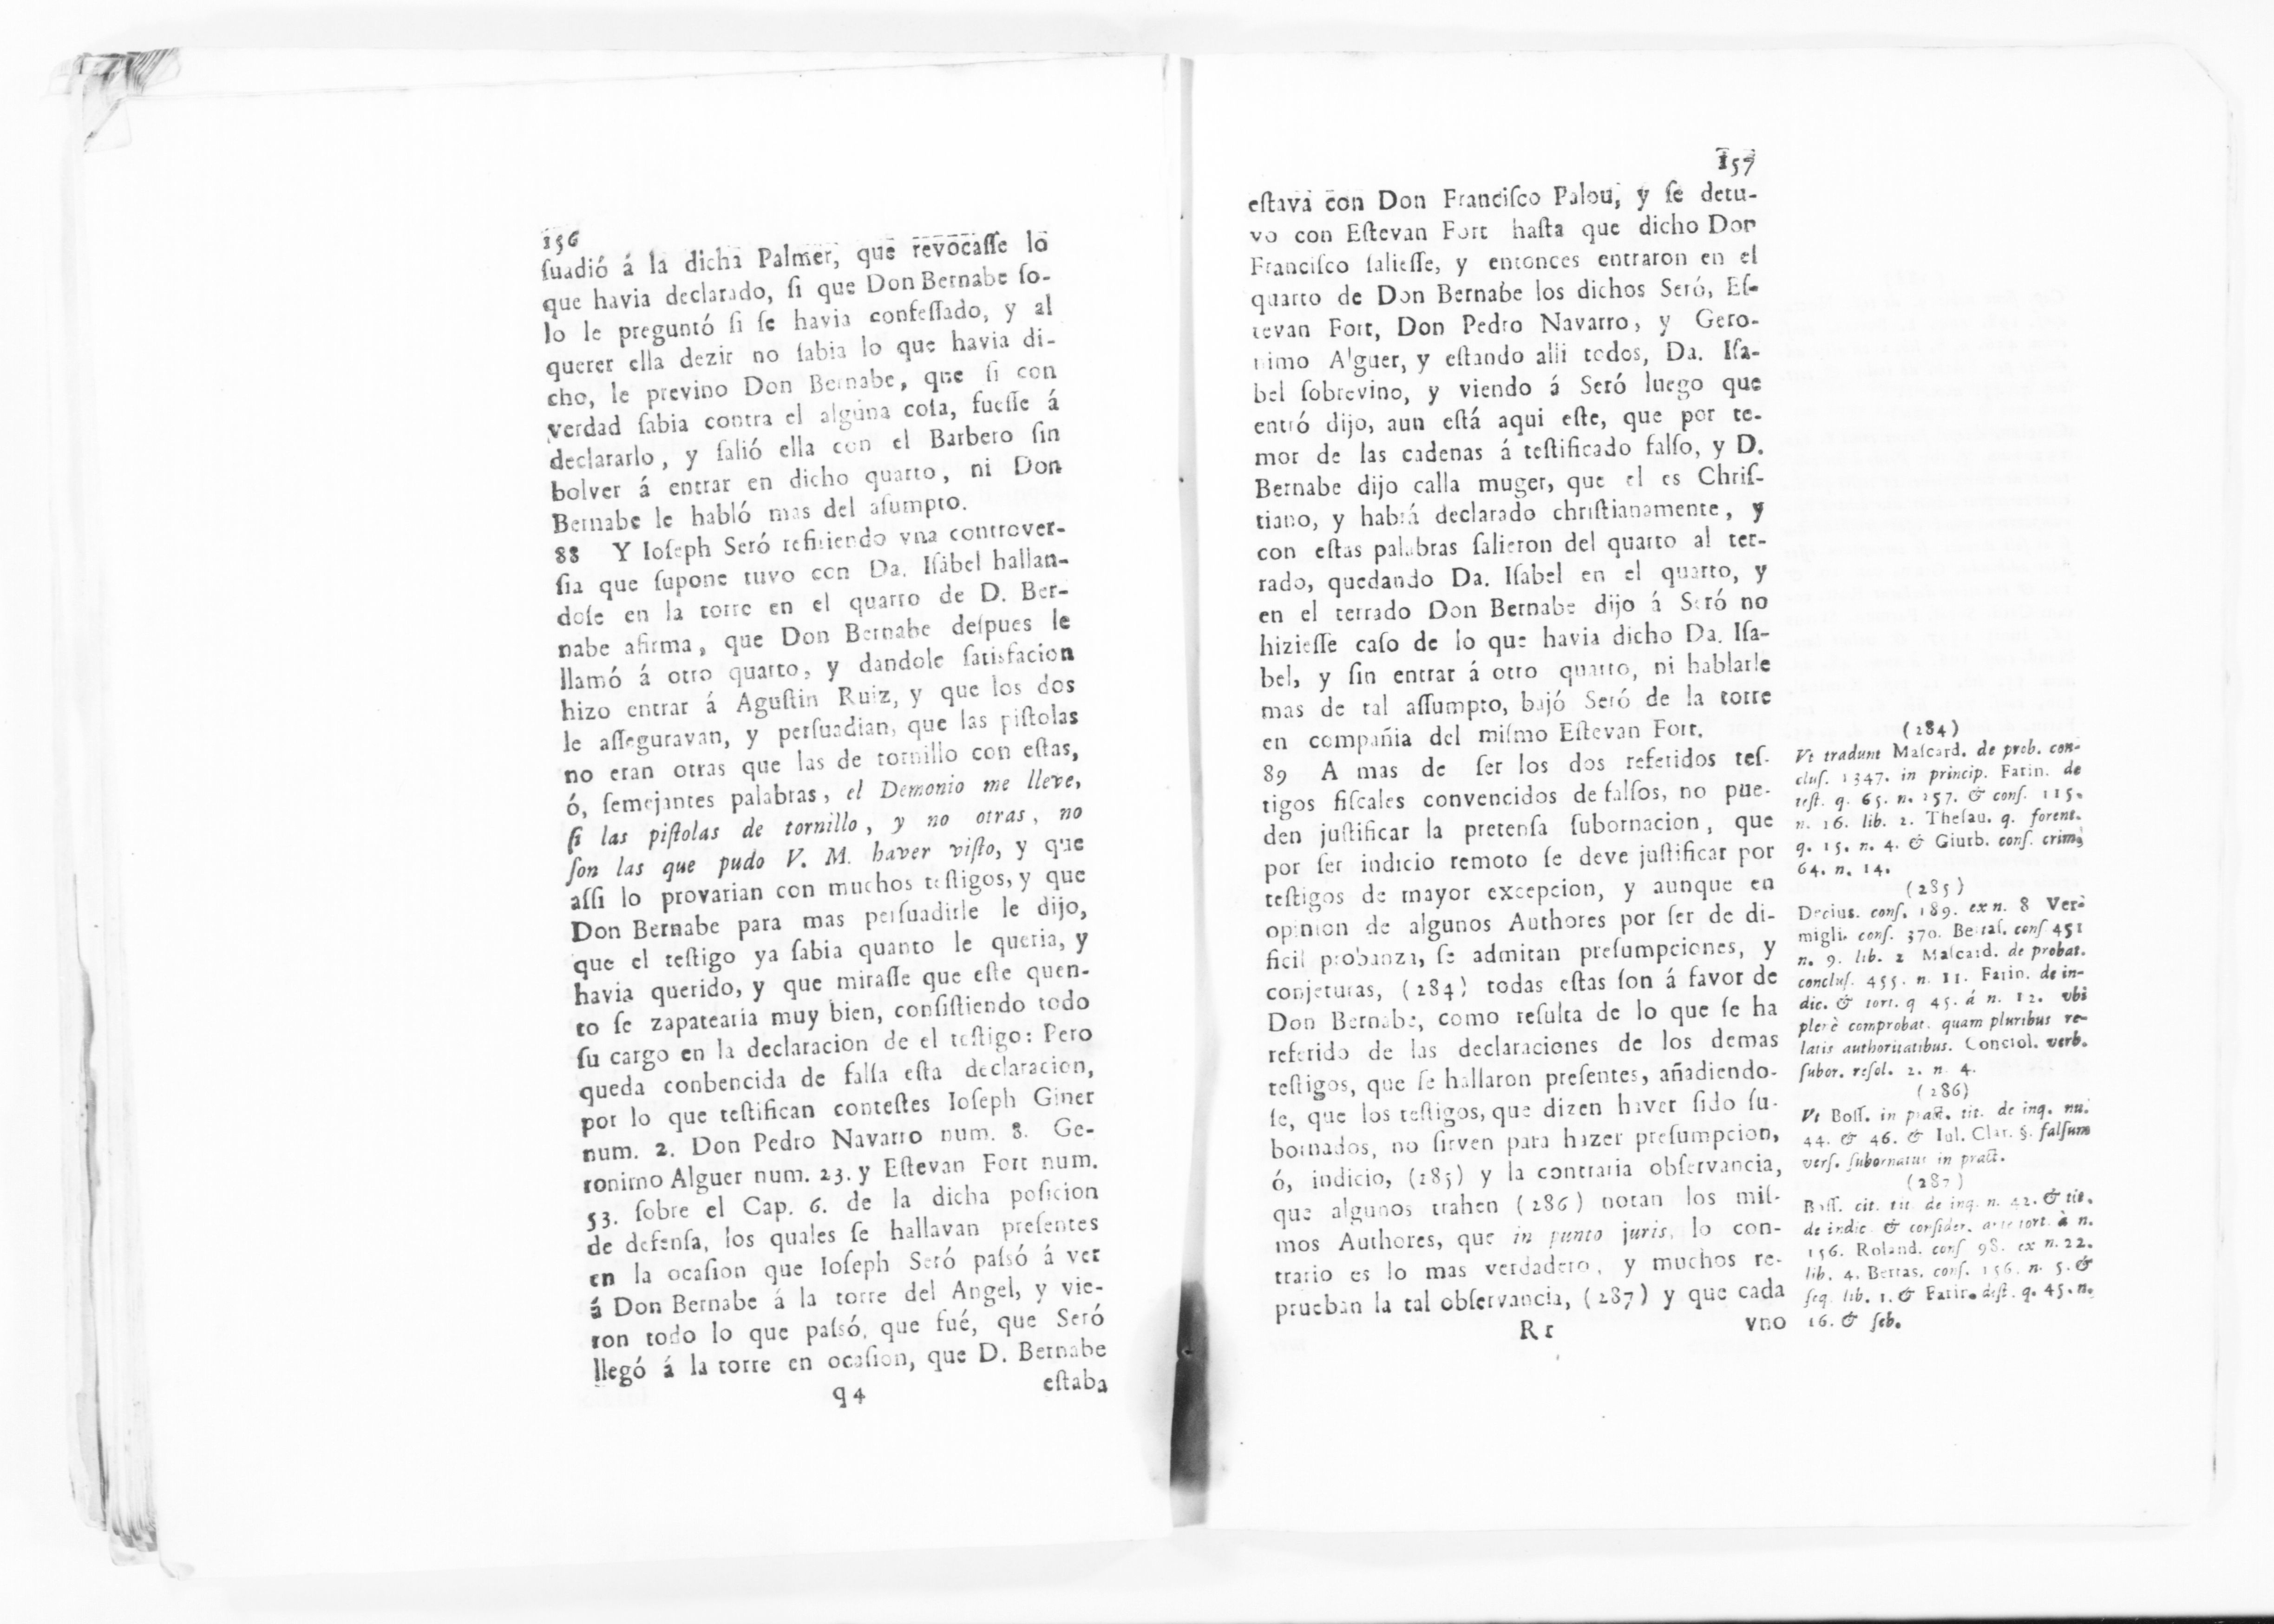 156
ſuadió á la dicha Palmer, que revocaſſe lo
que havia declarado, ſi que Don Bernabe ſo-
lo le preguntó ſi ſe havia confeſſado, y al
querer ella dezir no ſabia lo que havia di-
cho, le previno Don Bernabe, que ſi con
verdad ſabia contra el alguna coſa, fueſſe á
declararlo, y ſalió ella con el Barbero ſin
bolver á entrar en dicho quarto, ni Don
Bernabe le habló mas del aſumpto.
88 Y Ioſeph Seró refiriendo vna controver-
ſia que ſupone tuvo con Da. Iſabel hallan-
doſe en la torre en el quarto de D. Ber-
nabe afirma, que Don Bernabe deſpues le
llamó á otro quarto, y dandole ſatisfacion
hizo entrar á Aguſtin Ruiz, y que los dos
le aſſeguravan, y perſuadian, que las piſtolas
no eran otras que las de tornillo con eſtas,
ó, ſemejantes palabras, el Demonio me lleve,
ſi las piſtolas de tornillo, y no otras, no
ſon las que pudo V. M. haver viſto, y que
aſſi lo provarian con muchos teſtigos, y que
Don Bernabe para mas perſuadirle le dijo,
que el teſtigo ya ſabia quanto le queria, y
havia querido, y que miraſſe que eſte quen-
to ſe zapatearia muy bien, conſiſtiendo todo
ſu cargo en la declaracion de el teſtigo: Pero
queda conbencida de falſa eſta declaracion,
por lo que teſtifican conteſtes Ioſeph Giner
num. 2. Don Pedro Navarro num. 8. Ge-
ronimo Alguer num. 23. y Eſtevan Fort num.
53. ſobre el Cap. 6. de la dicha poſicion
de defenſa, los quales ſe hallavan preſentes
en la ocaſion que Ioſeph Seró paſsó á ver
á Don Bernabe á la torre del Angel, y vie-
ron todo lo que paſsó, que fué, que Seró
llegó á la torre en ocaſion, que D. Bernabe
q 4 eſtaba
157
eſtava con Don Franciſco Palou, y ſe detu-
vo con Eſtevan Fort haſta que dicho Don
Franciſco ſalieſſe, y entonces entraron en el
quarto de Don Bernabe los dichos Seró, Eſ-
tevan Fort, Don Pedro Navarro, y Gero-
nimo Alguer, y eſtando alli todos, Da. Iſa-
bel ſobrevino, y viendo á Seró luego que
entró dijo, aun eſtá aqui eſte, que por te-
mor de las cadenas á teſtificado falſo, y D.
Bernabe dijo calla muger, que el es Chriſ-
tiano, y habrá declarado chriſtianamente, y
con eſtas palabras ſalieron del quarto al ter-
rado, quedando Da. Iſabel en el quarto, y
en el terrado Don Bernabe dijo á Seró no
hizieſſe caſo de lo que havia dicho Da. Iſa-
bel, y ſin entrar á otro quarto, ni hablarle
mas de tal aſſumpto, bajó Seró de la torre
en compañia del miſmo Eſtevan Fort.
89 A mas de ſer los dos referidos teſ-
tigos fiſcales convencidos de falſos, no pue-
den juſtificar la pretenſa ſubornacion, que
por ſer indicio remoto ſe deve juſtificar por
teſtigos de mayor excepcion, y aunque en
opinion de algunos Authores por ſer de di-
ficil probanza, ſe admitan preſumpciones, y
conjeturas, (284) todas eſtas ſon á favor de
Don Bernabe, como reſulta de lo que ſe ha
referido de las declaraciones de los demas
teſtigos, que ſe hallaron preſentes, añadiendo-
ſe, que los teſtigos, que dizen haver ſido ſu-
bornados, no ſirven para hazer preſumpcion,
ó, indicio, (285) y la contraria obſervancia,
que algunos trahen (286) notan los miſ-
mos Authores, que in punto juris, lo con-
trario es lo mas verdadero, y muchos re-
prueban la tal obſervancia, (287) y que cada
R r vno
(284)
Vt tradunt Maſcard. de prob. con-
cluſ. 1347. in princip. Farin. de
teſt. q. 65. n. 257. & conſ. 115.
n. 16. lib. 2. Theſau. q. forenſ.
q. 15. n. 4. & Giurb. conſ. crim.
64. n. 14.
(285)
Decius. conſ. 189. ex n. 8 Ver-
migli. conſ. 370. Bertaſ. conſ 451
n. 9. lib. 2 Maſcard. de probat.
concluſ. 455. n. 11. Farin. de in-
dic. & tort. q 45. á n. 12. vbi
plerè comprobat. quam pluribus re-
latis authoritatibus. Conciol. verb.
ſubor. reſol. 2. n 4.
(286)
Vt Boſſ. in pract. tit. de inq. nu.
44. & 46. & Iul. Clar. §. falſum
verſ. ſubornatus in pract.
(287)
Boſſ. cit. tit. de inq. n. 42. & tit.
de indic. & conſider. ante tort. à n.
156. Roland. conſ 98. ex n. 22.
lib. 4. Bertas. conſ. 156. n. 5. &
ſeq lib. 1. & Farin. deſt. q. 45. n.
16. & ſeb.